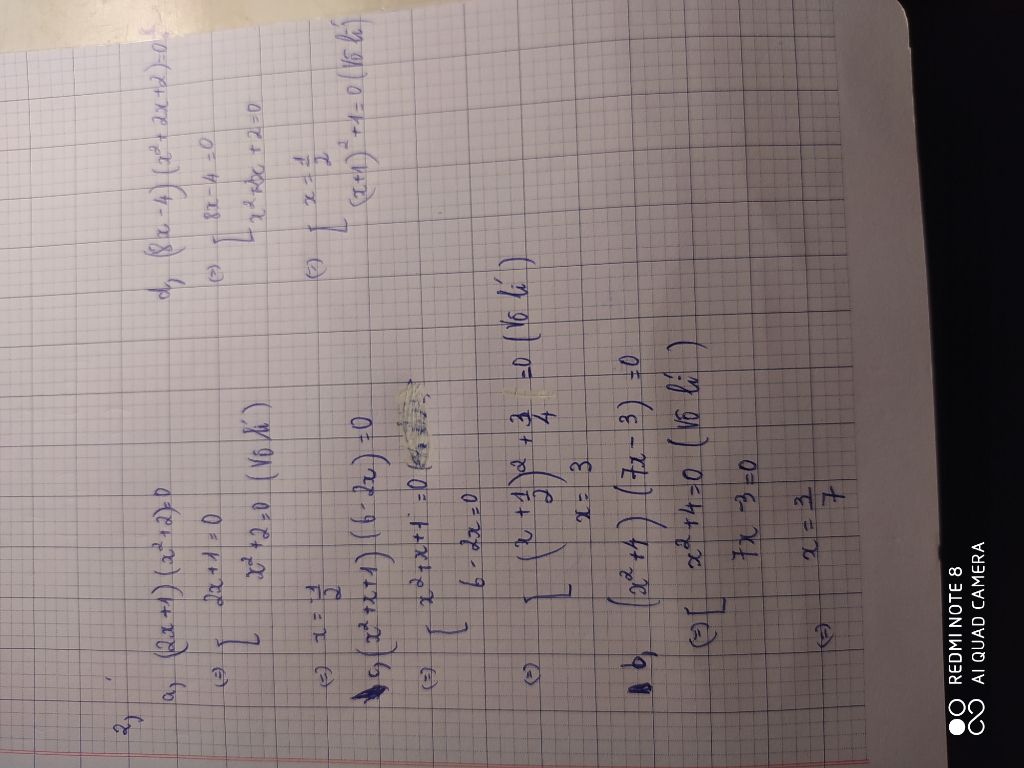 2,
a, (2x+1)(x²+2)=0
(=) [ 2x+1=0
x²+2=0 (Vô lí)
(=) x = -1/2
c, (x²+x+1)(6-2x)=0
(=) [ x²+x+1=0
6-2x=0
(=) [ (x+1/2)²+3/4=0 (Vô lí)
x=3
b, (x²+4)(7x-3)=0
(=) [ x²+4=0 (Vô lí)
7x-3=0
(=) x=3/7
d, (8x-4)(x²+2x+2)=0
(=) [ 8x-4=0
x²+2x+2=0
(=) [ x=1/2
(x+1)²+1=0 (Vô lí)
REDMI NOTE 8
AI QUAD CAMERA